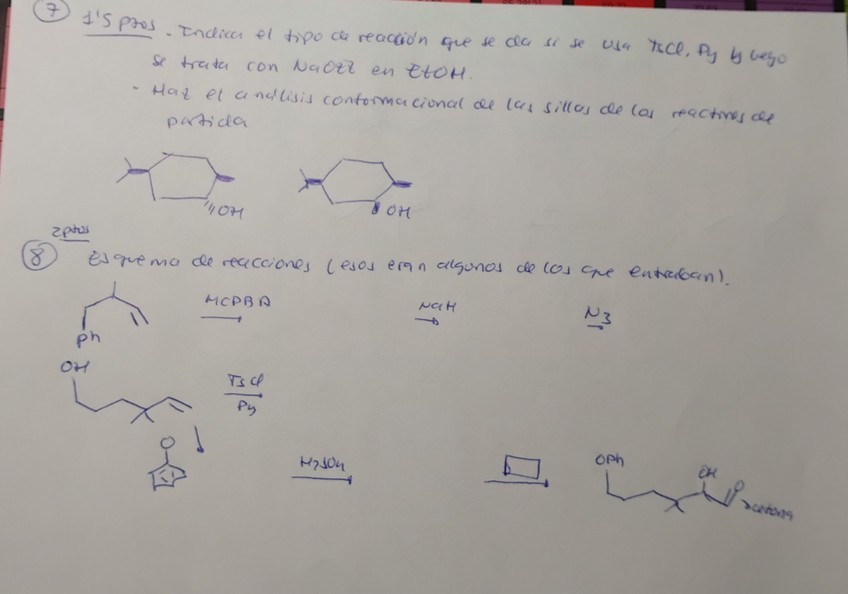 7 1'5 ptos. - Indica el tipo de reacción que se da si se usa TsCl, Py y luego
se trata con NaOEt en EtOH.
- Haz el análisis conformacional de las sillas de los reactivos de
partida
OH
OH
2ptos
8 Esquema de reacciones (esos eran algunos de los que entraban).
MCPBA
NaH
N3
Ph
OH
TsCl
Py
O
H2SO4
OPh
OH
O
acetona